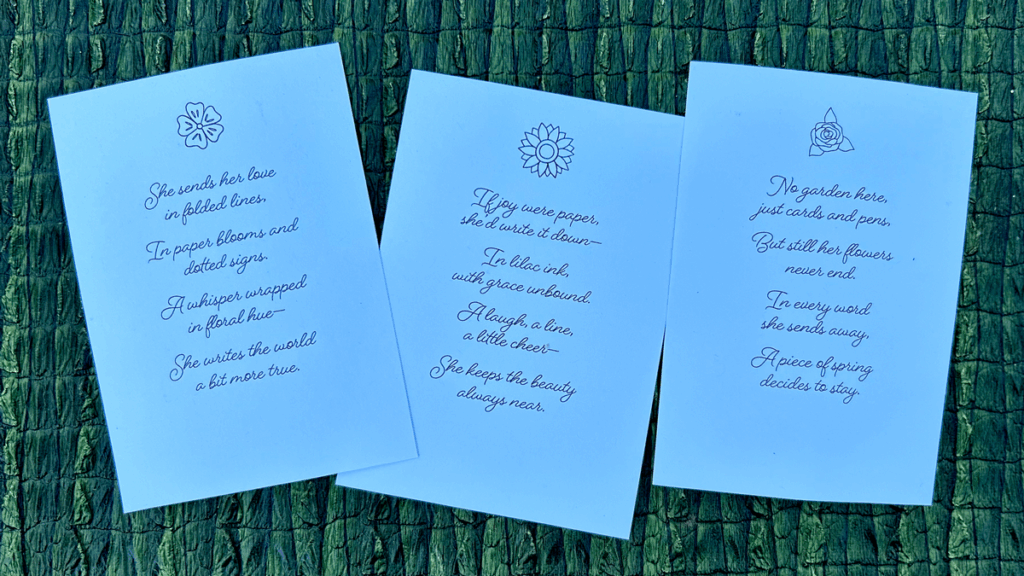 She sends her love
in folded lines,
In paper blooms and
dotted signs.
A whisper wrapped
in floral hue—
She writes the world
a bit more true.
If joy were paper,
she'd write it down—
In lilac ink,
with grace unbound.
A laugh, a line,
a little cheer—
She keeps the beauty
always near.
No garden here,
just cards and pens,
But still her flowers
never end.
In every word
she sends away,
A piece of spring
decides to stay.